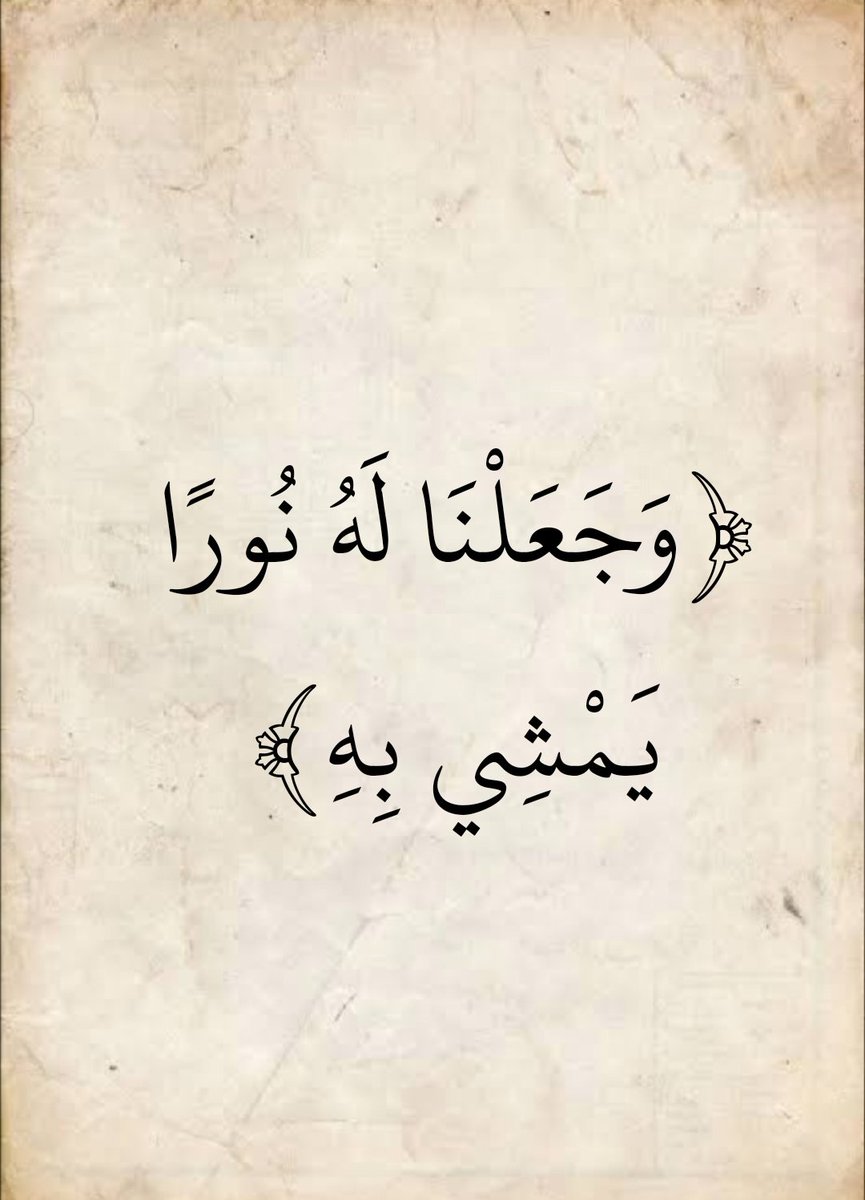 ﴿وَجَعَلْنَا لَهُ نُورًا
يَمْشِي بِهِ﴾